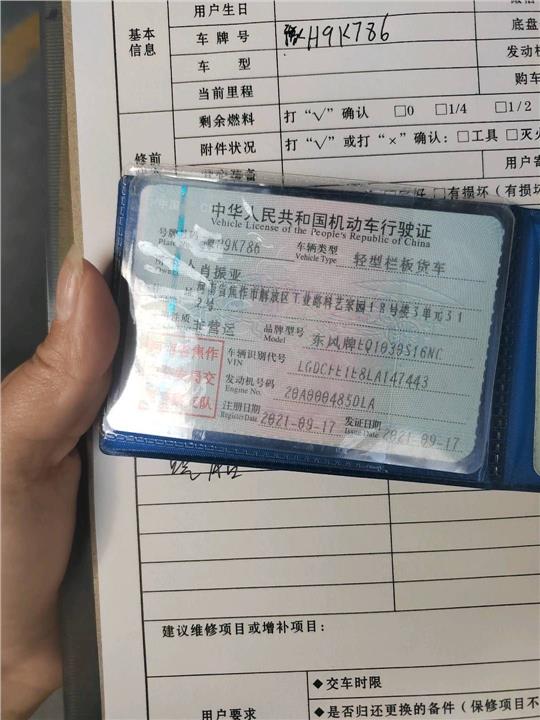 用户生日
基本
信息
车牌号
H9K786
底盘
车 型
发动机
当前里程
购车
剩余燃料 打“√”确认 □0 □1/4 □1/2
附件状况 打“√”或打“×”确认：□工具 □灭火
修前
用户寄
□有损坏（有损坏
中华人民共和国机动车行驶证
Vehicle License of the People's Republic of China
号牌号码
H9K786
车辆类型
Vehicle Type
轻型栏板货车
人
Owner
肖振亚
焦作市解放区工业路科艺家园18号楼3单元31
2号
营运
品牌型号
Model
东风牌EQ1030S16NC
车辆识别代号
VIN
发动机号码
Engine No.
20A000485DLA
注册日期
Register Date
2021-09-17
发证日期
Issue Date
2021-09-17
建议维修项目或增补项目：
用户要求
◆交车时限
◆是否归还更换的备件（保修项目不